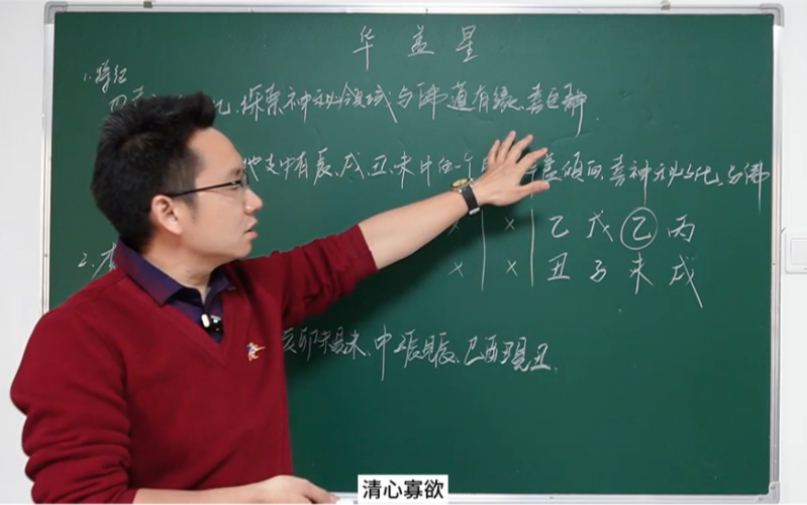 华盖星
1.特征
探索神秘领域与佛道有缘、喜
地支中有辰、戌、丑、未中任一个 华盖倾向、喜神秘文化、与佛
2.
× × 乙 戊 乙 丙
× × 丑 子 未 戌
亥卯未见未、申子辰见辰、巳酉丑见丑、
清心寡欲